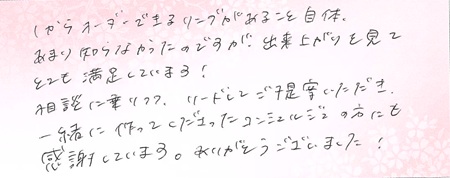 1からオーダーできるリングがあること自体、
あまり知らなかったのですが、出来上がりを見て
とても満足しています!
相談に乗りつつ、リードしてご提案いただき、
一緒に作ってくださったコンシェルジュの方にも
感謝しています。ありがとうございました!